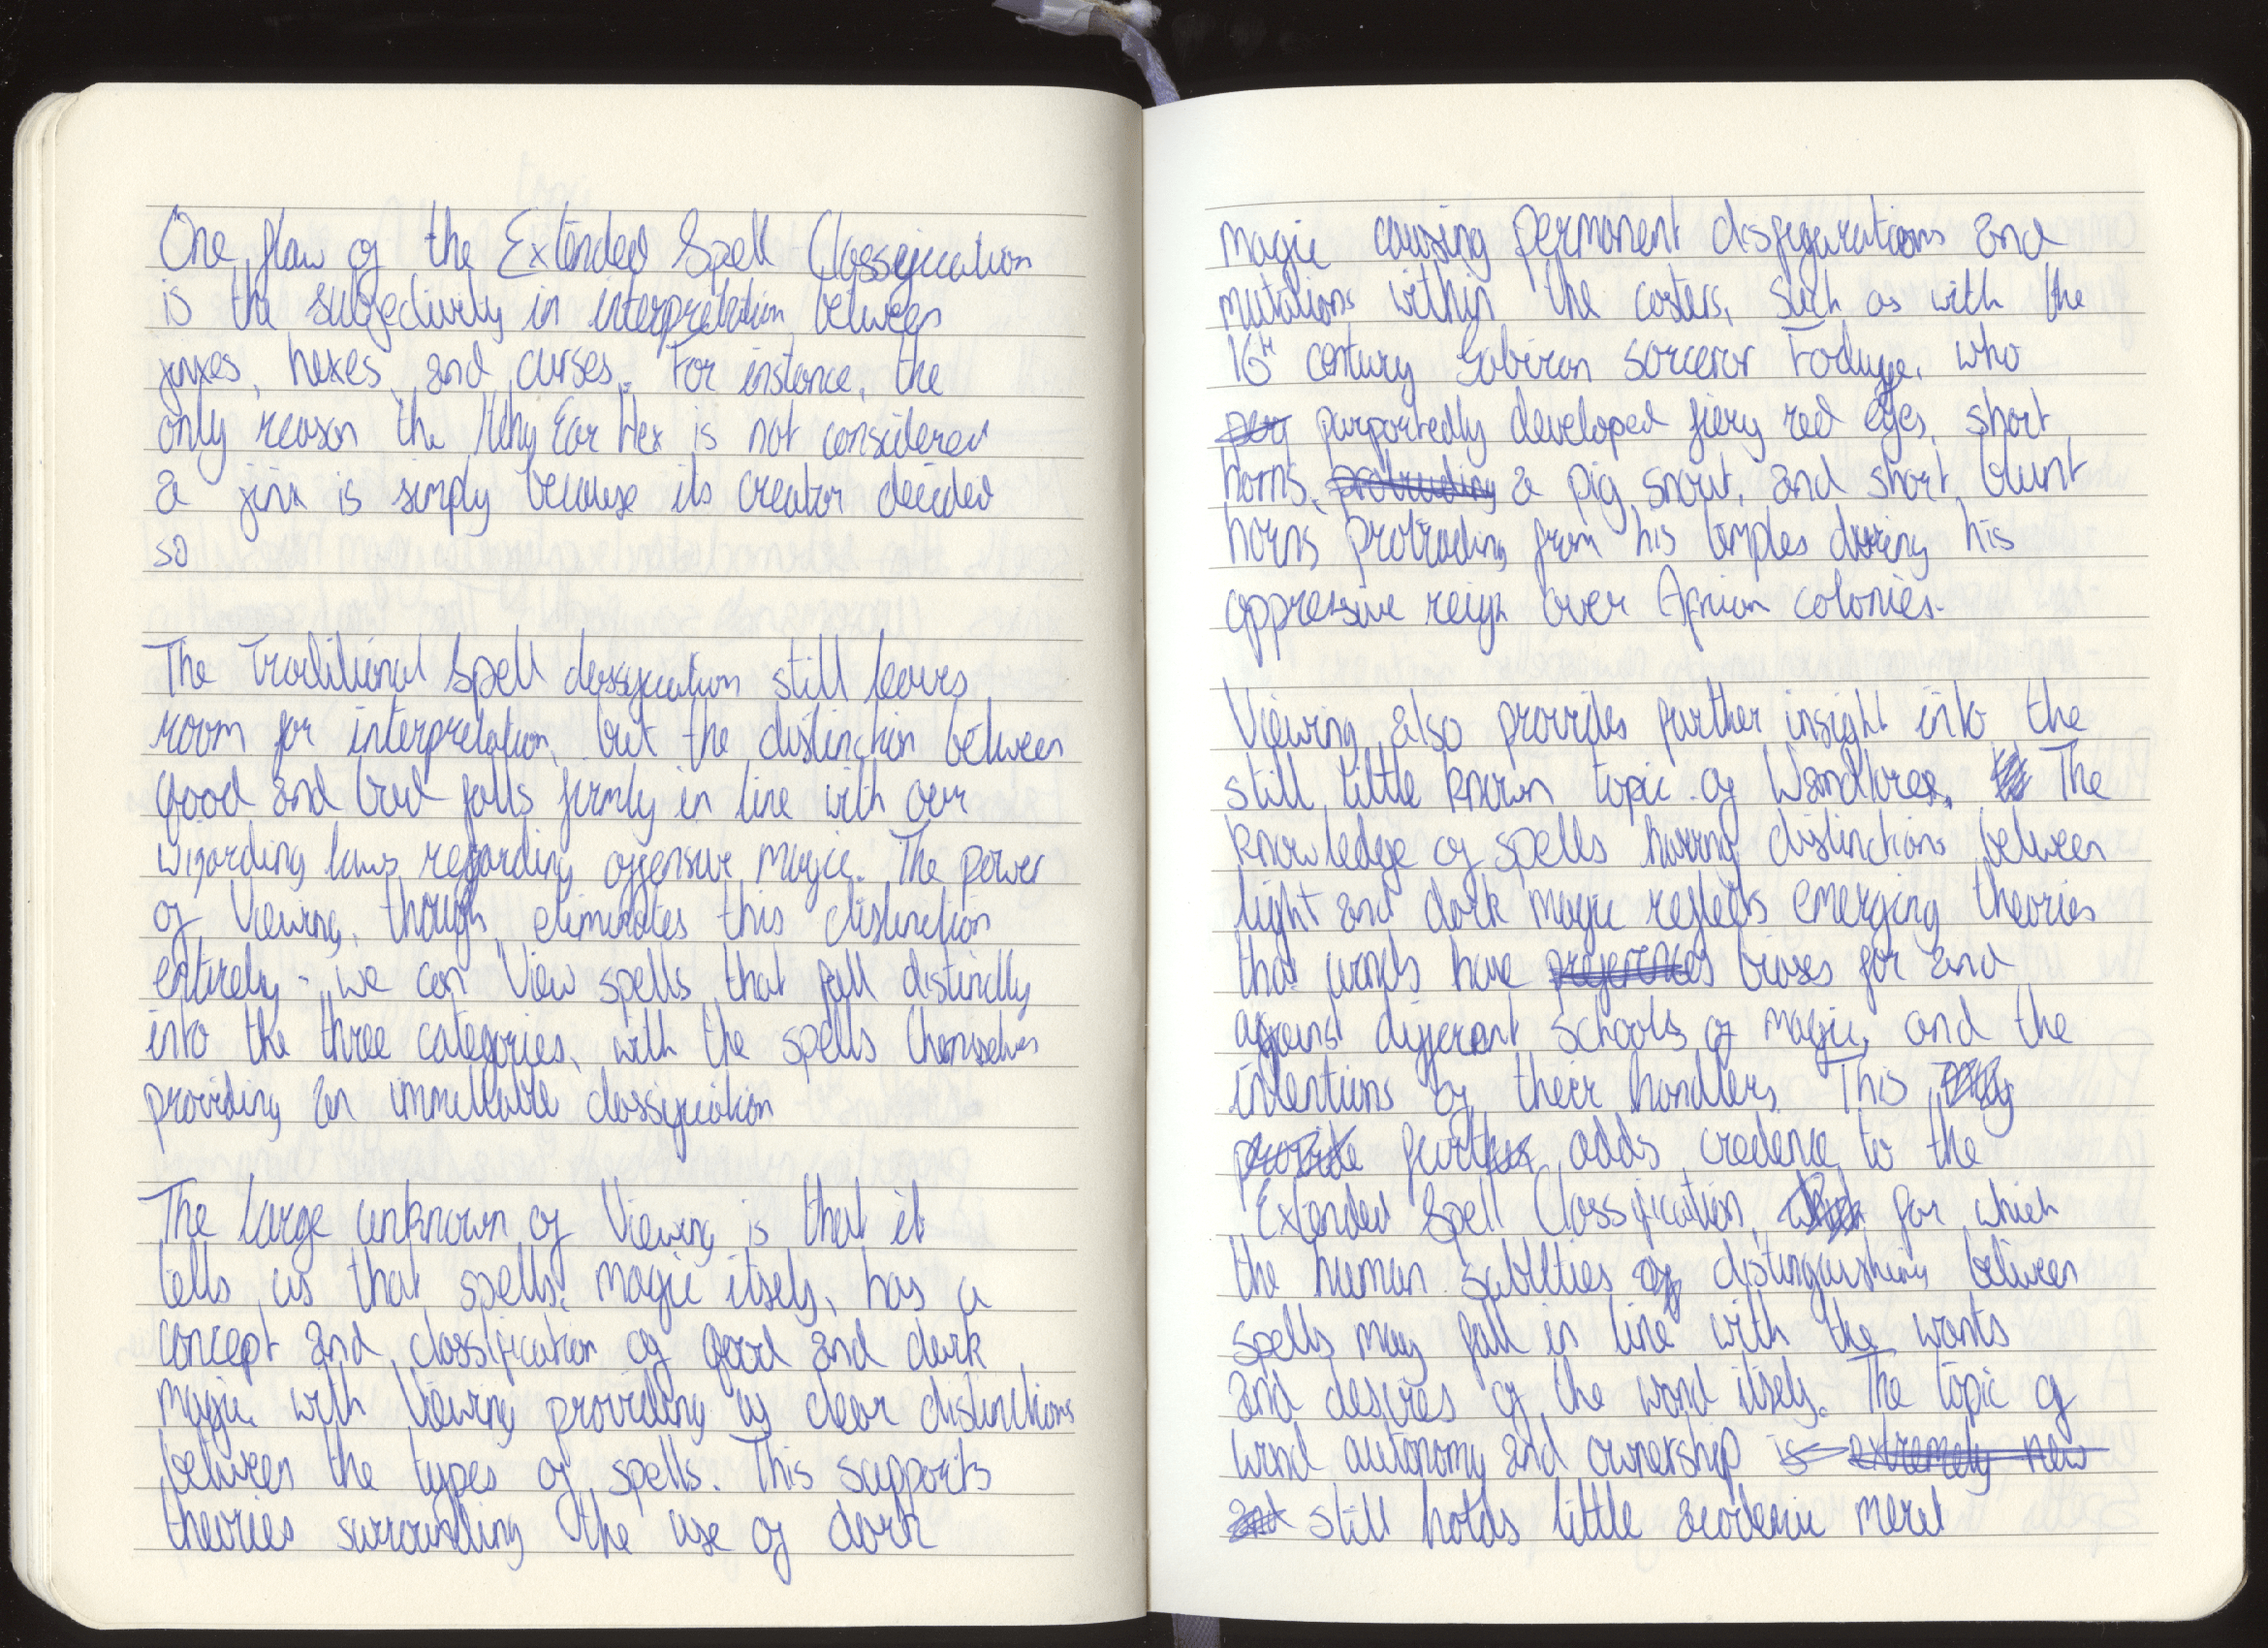 One flaw of the Extended Spell Classification
is the subjectivity in interpretation between
jinxes, hexes, and curses. For instance, the
only reason the Itchy Ear Hex is not considered
a jinx is simply because its creator decided
so
The Traditional Spell classification still leaves
room for interpretation, but the distinction between
good and bad falls firmly in line with our
wizarding laws regarding offensive magic. The power
of Viewing, though, eliminates this distinction
entirely - we can View spells that fall distinctly
into the three categories, with the spells themselves
providing an immutable classification
The large unknown of Viewing is that it
tells us that spells, magic itself, has a
concept and classification of good and dark
magic, with Viewing providing us clear distinctions
between the types of spells. This supports
theories surrounding the use of dark
magic causing permanent disfigurations and
mutations within the casters, such as with the
16th century sorceror who
purportedly developed fiery red eyes, short
horns, protruding a pig snout, and short, blunt
horns protruding from his temples during his
oppressive reign over African colonies.
Viewing also provides further insight into the
still little known topic of Wandlore. The
knowledge of spells having distinctions between
light and dark magic reflects emerging theories
that wands have preferences biases for and
against different schools of magic, and the
intentions of their handlers. This
provide further adds credence to the
Extended Spell Classification, which for which
the human subtlties of distinguishing between
spells may fall in line with the wants
and desires of the wand itself. The topic of
wand autonomy and ownership is extremely new
and still holds little academic merit